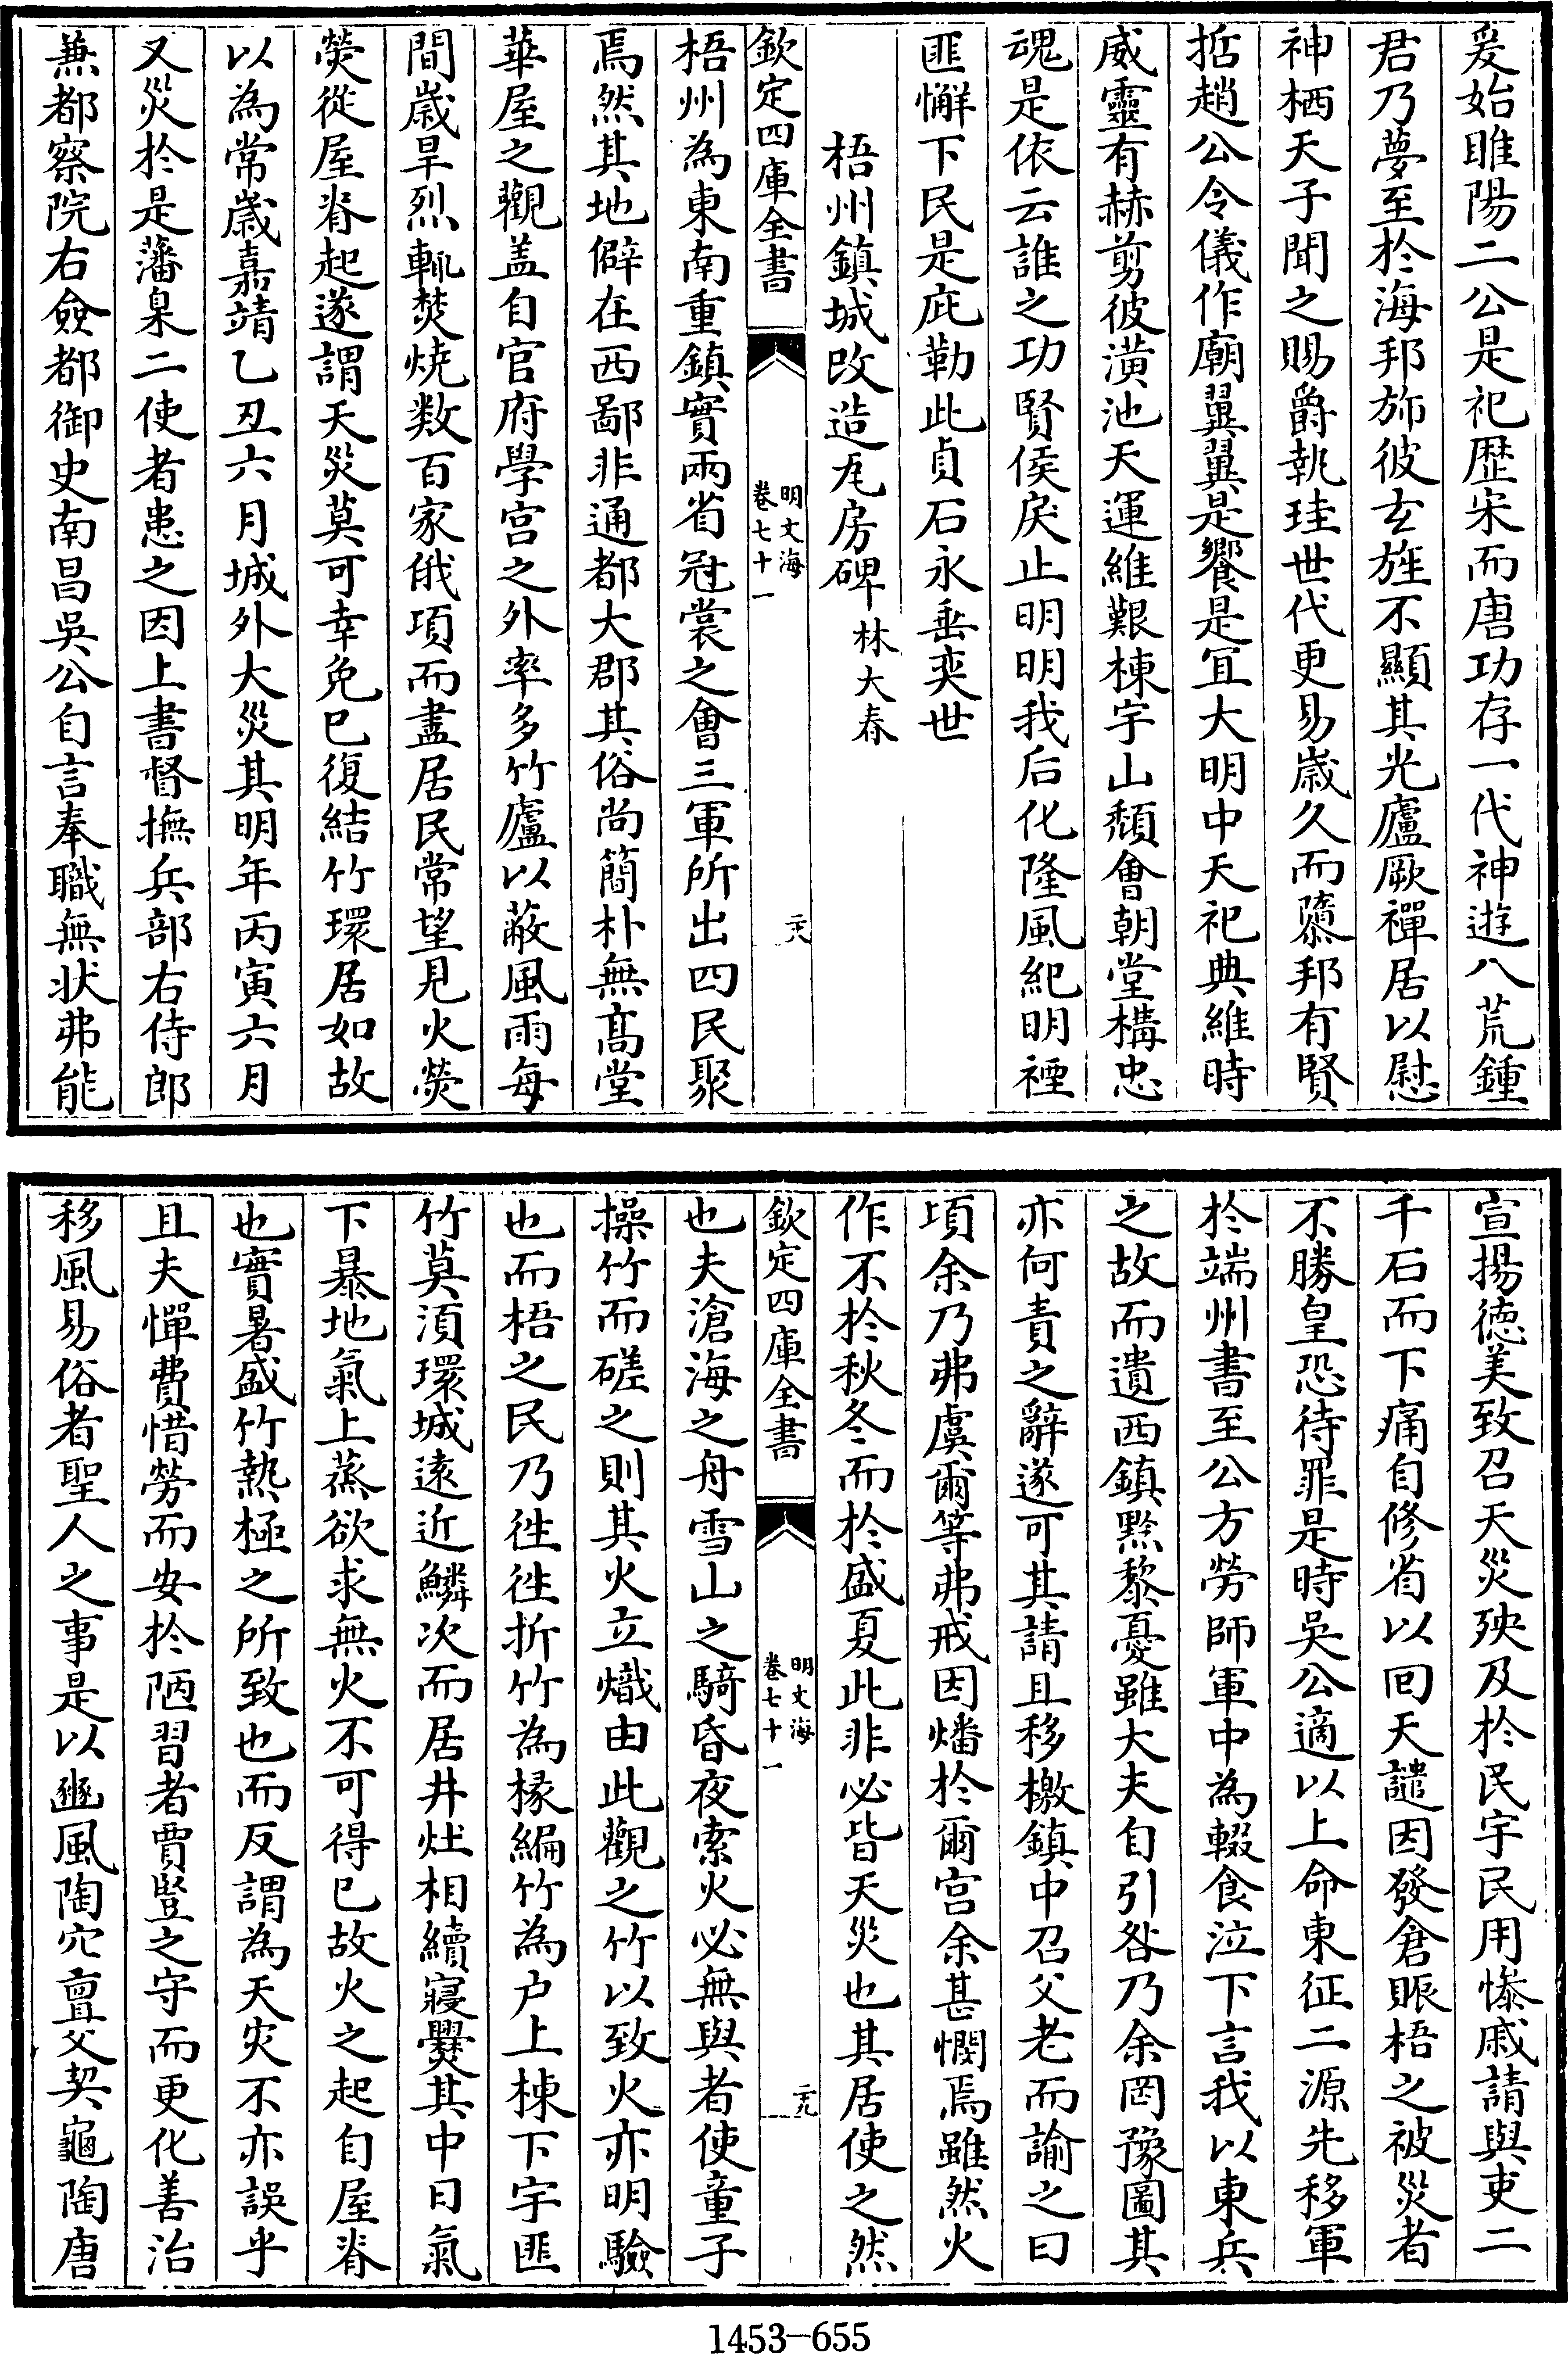 爰始睢陽二公是祀歴宋而唐功存一代神遊八荒鍾
君乃夢至於海邦斾彼玄旌不顯其光廬厥禪居以慰
神栖天子聞之賜爵執珪世代更易歲久而隳邦有賢
哲趙公令儀作廟翼翼是饗是宜大明中天祀典維時
威靈有赫剪彼潢池天運維艱棟宇山頽會朝堂構忠
魂是依云誰之功賢侯戾止明明我后化隆風紀明禋
匪懈下民是庇勒此貞石永垂奕世
梧州鎮城改造瓦房碑 林大春
欽定四庫全書
明文海
卷七十一
二十八
梧州為東南重鎮實兩省冠裳之會三軍所出四民聚
焉然其地僻在西鄙非通都大郡其俗尚簡朴無髙堂
華屋之觀盖自官府學宫之外率多竹廬以蔽風雨每
間歲旱烈輒焚燒数百家俄項而盡居民常望見火熒
熒從屋脊起遂謂天災莫可幸免已復結竹環居如故
以為常歲嘉靖乙丑六月城外大災其明年丙寅六月
又災於是藩臬二使者患之因上書督撫兵部右侍郎
兼都察院右僉都御史南昌吳公自言奉職無状弗能
宣揚徳美致召天災殃及於民宇民用慘戚請與吏二
千石而下痛自修省以回天譴因發倉賑梧之被災者
不勝皇恐待罪是時吳公適以上命東征二源先移軍
於端州書至公方勞師軍中為輟食泣下言我以東兵
之故而遺西鎮黔黎憂雖大夫自引咎乃余罔豫圖其
亦何責之辭遂可其請且移檄鎮中召父老而諭之曰
項余乃弗虞爾等弗戒因燔於爾宫余甚憫焉雖然火
作不於秋冬而於盛夏此非必皆天災也其居使之然
欽定四庫全書
明文海
卷七十一
二十九
也夫滄海之舟雪山之騎昏夜索火必無與者使童子
操竹而磋之則其火立熾由此觀之竹以致火亦明驗
也而梧之民乃徃徃折竹為椽編竹為户上棟下宇匪
竹莫湏環城遠近鱗次而居井灶相續寢爨其中日氣
下暴地氣上蒸欲求無火不可得已故火之起自屋脊
也實暑盛竹熱極之所致也而反謂為天灾不亦誤乎
且夫憚費惜勞而安於陋習者賈豎之守而更化善治
移風易俗者聖人之事是以豳風陶穴亶父契龜陶唐
1453—655